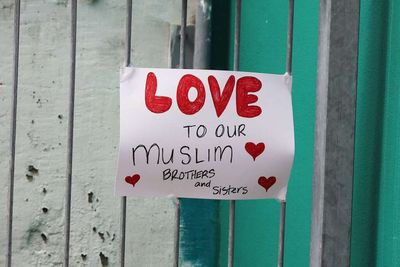 LOVE
TO OUR
MUSLIM
BROTHERS
and
SisterS